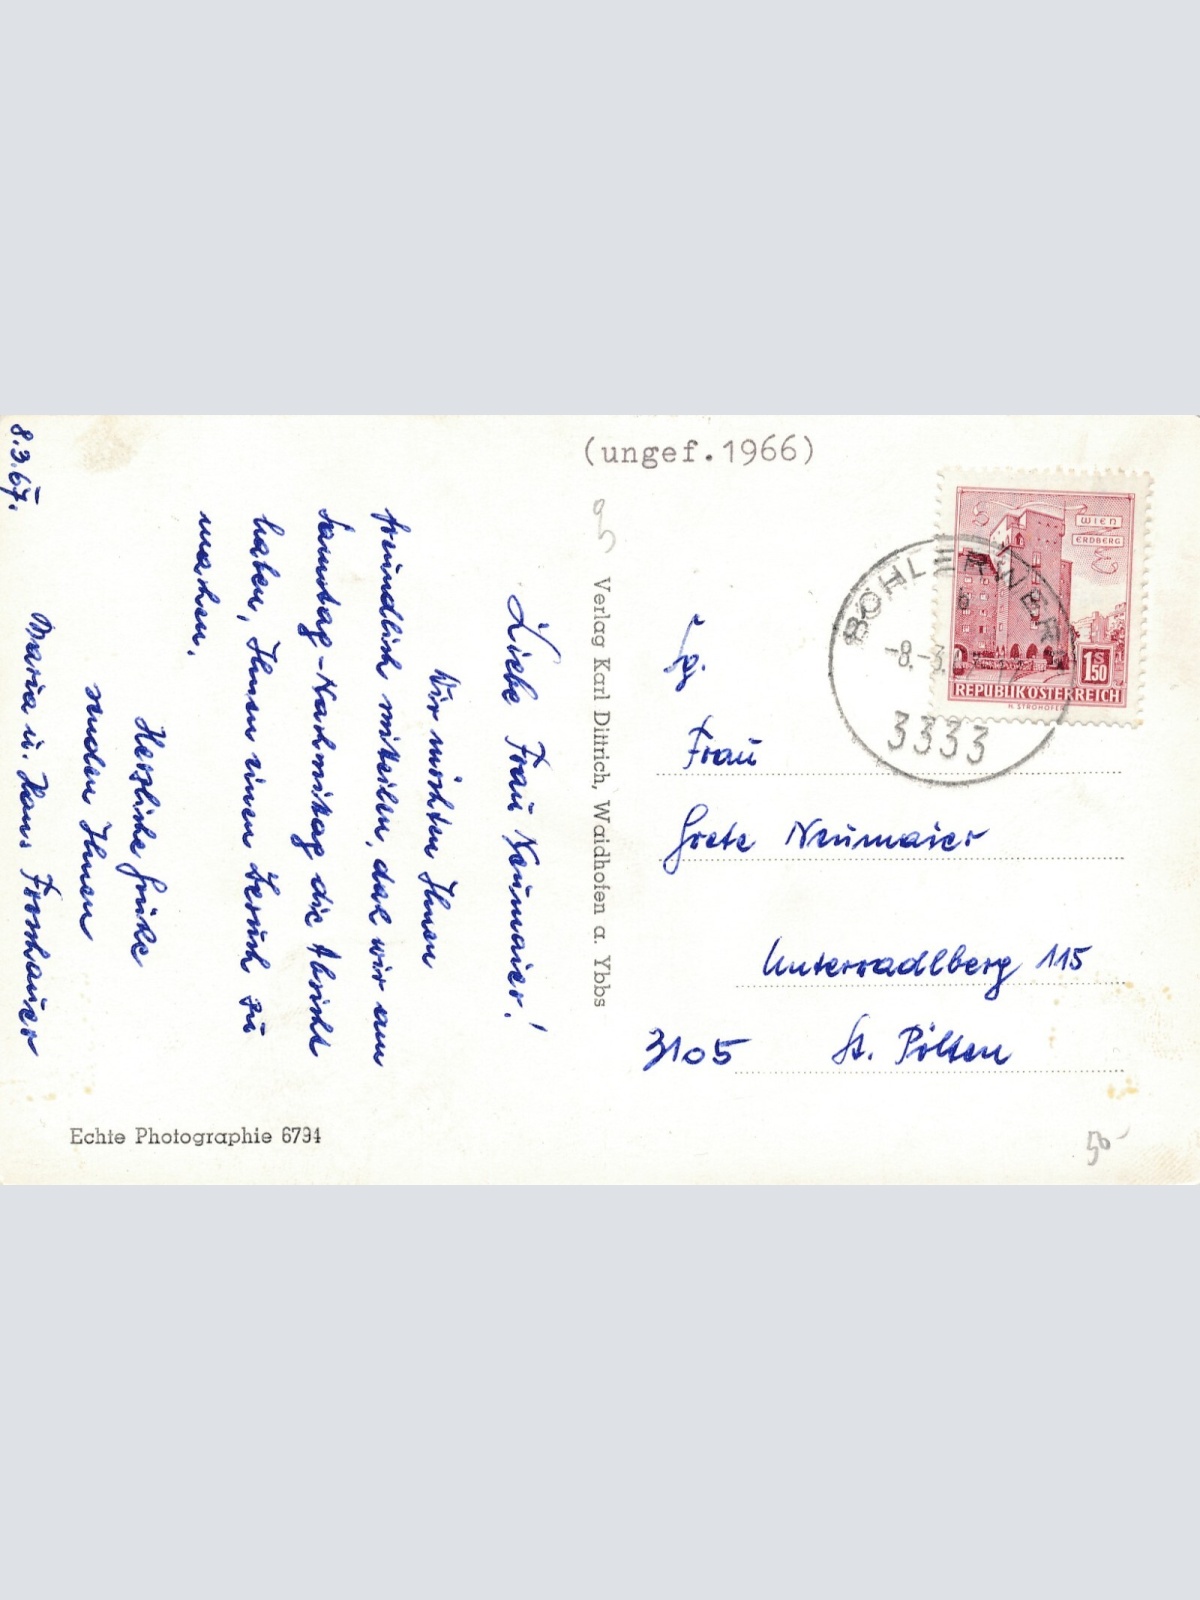 8.3.67.
Liebe Frau Neumaier!
Wir möchten Ihnen
freundlich mitteilen, daß wir am
Samstag-Nachmittag die Absicht
haben, Ihnen einen Besuch zu
machen.
Herzliche Grüße
senden Ihnen
Maria u. Hans
Echte Photographie 6794
Verlag Karl Dittrich, Waidhofen a. Ybbs
(ungef.1966)
WIEN
ERDBERG
1 S 50
REPUBLIK ÖSTERREICH
H. STROHOFER
BÖHLERWERK
-8.-3.
3333
Frau
Grete Neumaier
Unterradlberg 115
3105 St. Pölten
50